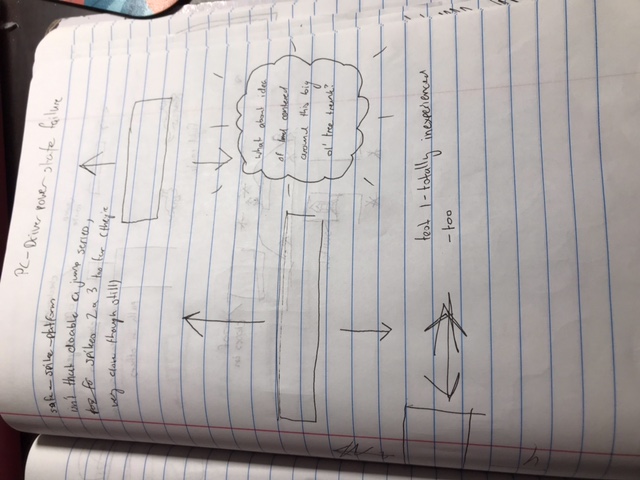 PC-Driver power state failure
safe-spike-platform
isn't that doable a jump series,
for spikes 2 & 3 too far (they're
very close though still)
What about idea
of level centered
around this big
ol' tree trunk?
test 1-totally inexperienced
-too